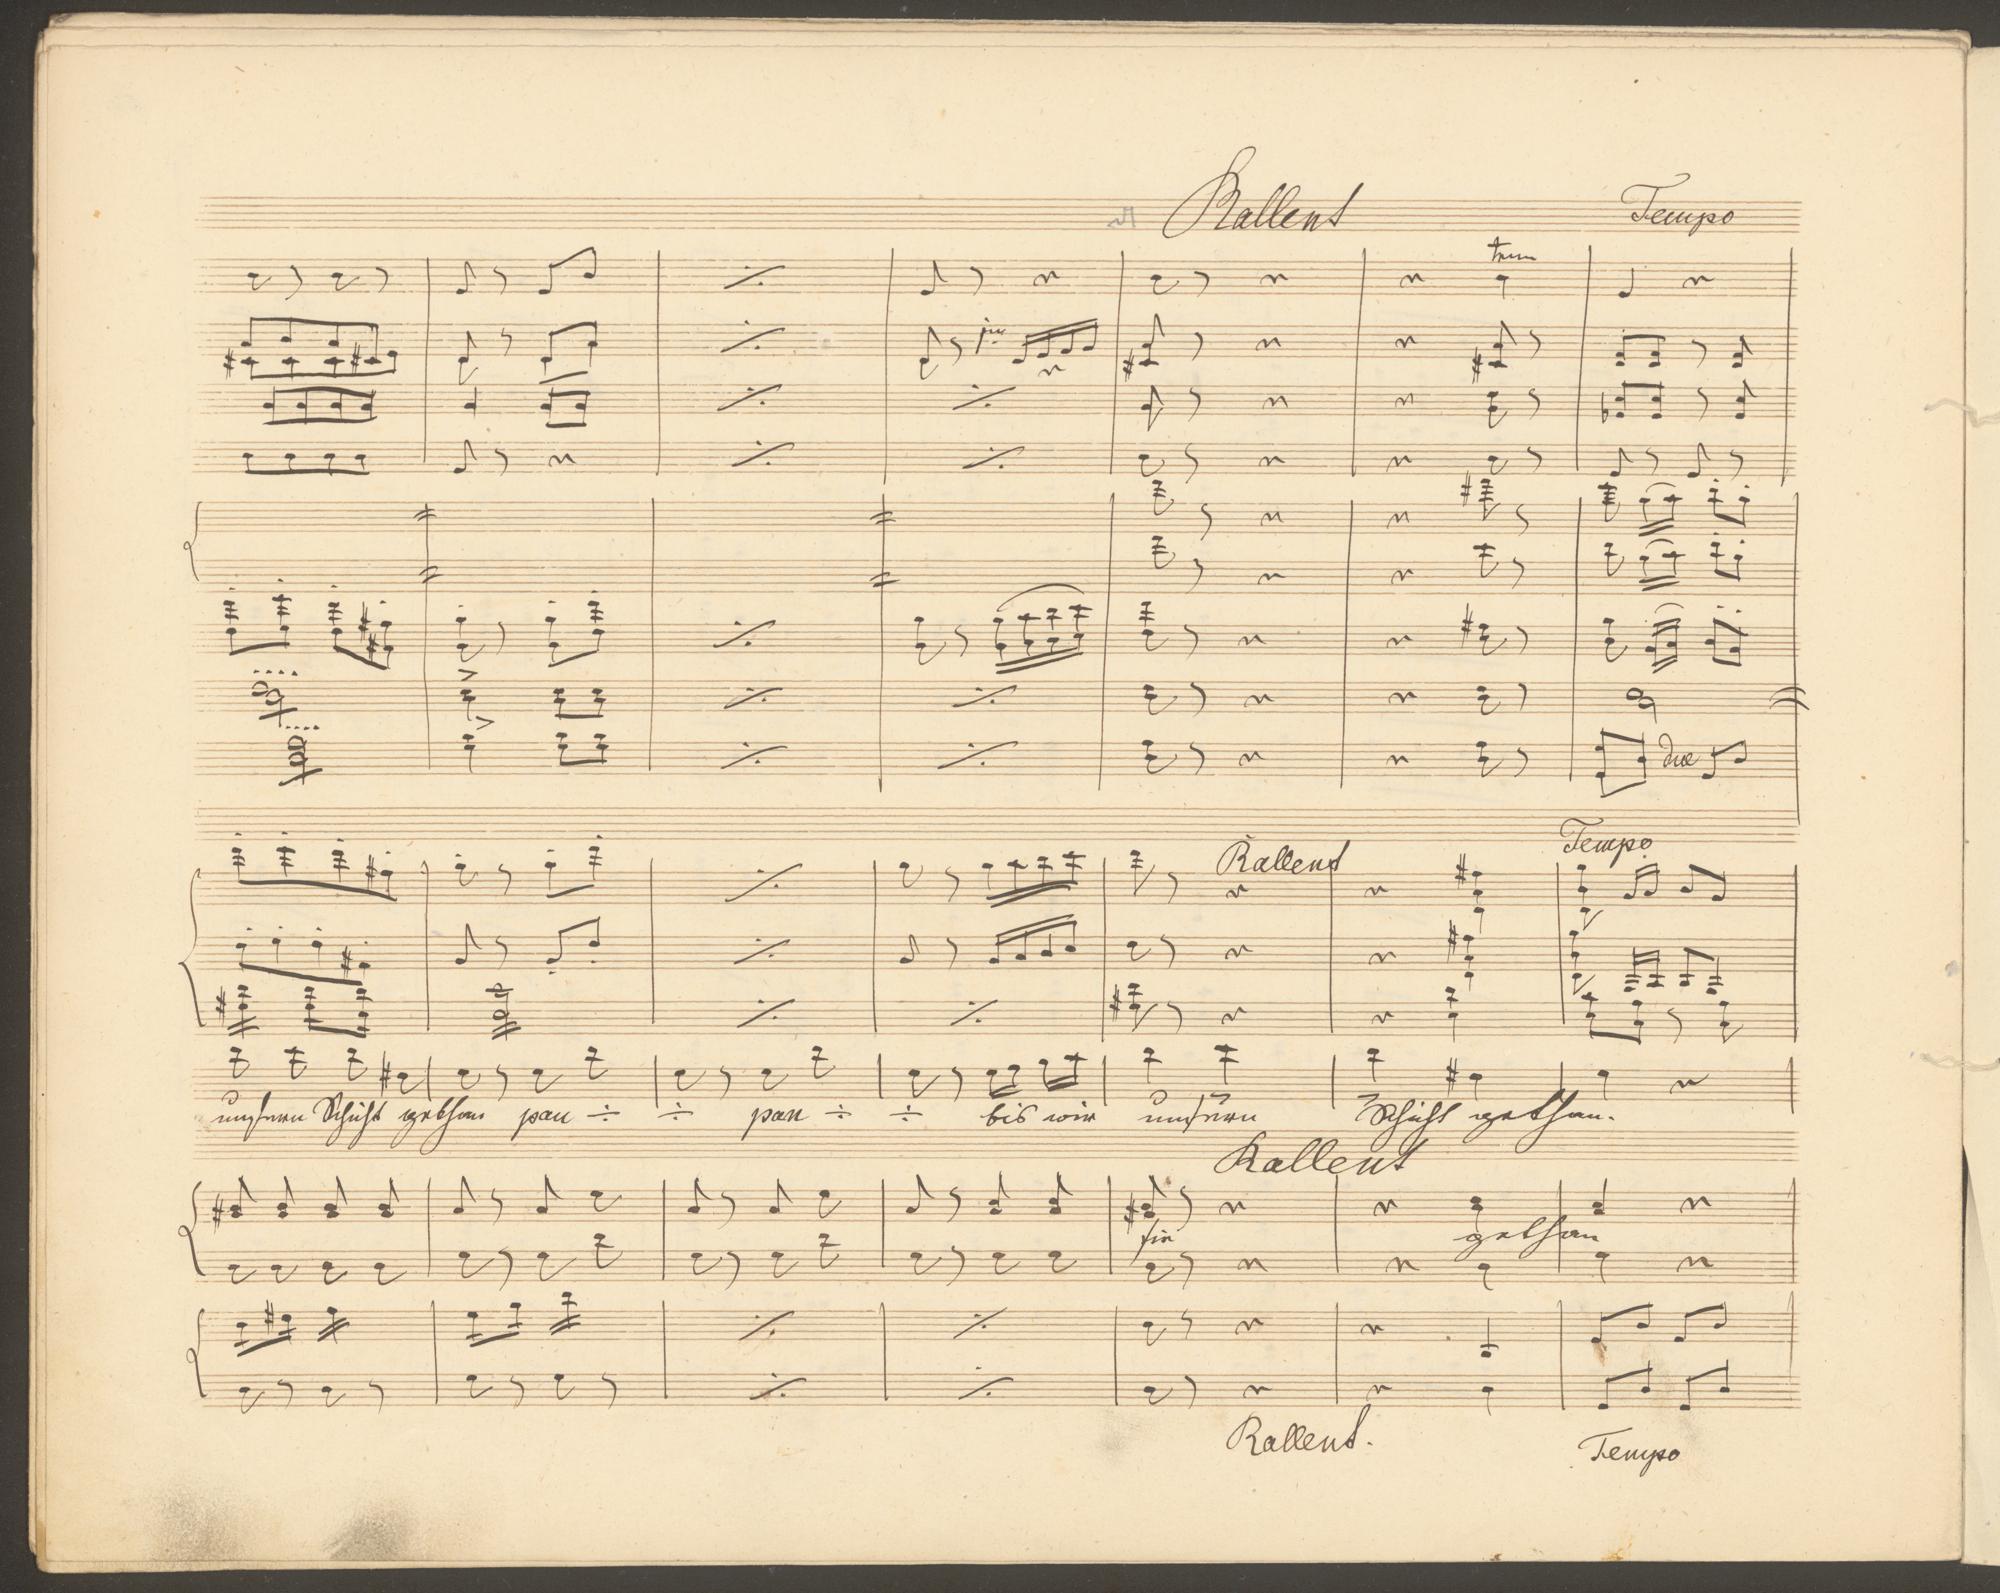 Rallent Tempo
trem
due
Rallent Tempo
unsern Schicht gethan pan ÷ ÷ pan ÷ ÷ bis wir unsern Schicht gethan.
Rallent
gethan
Rallent. Tempo